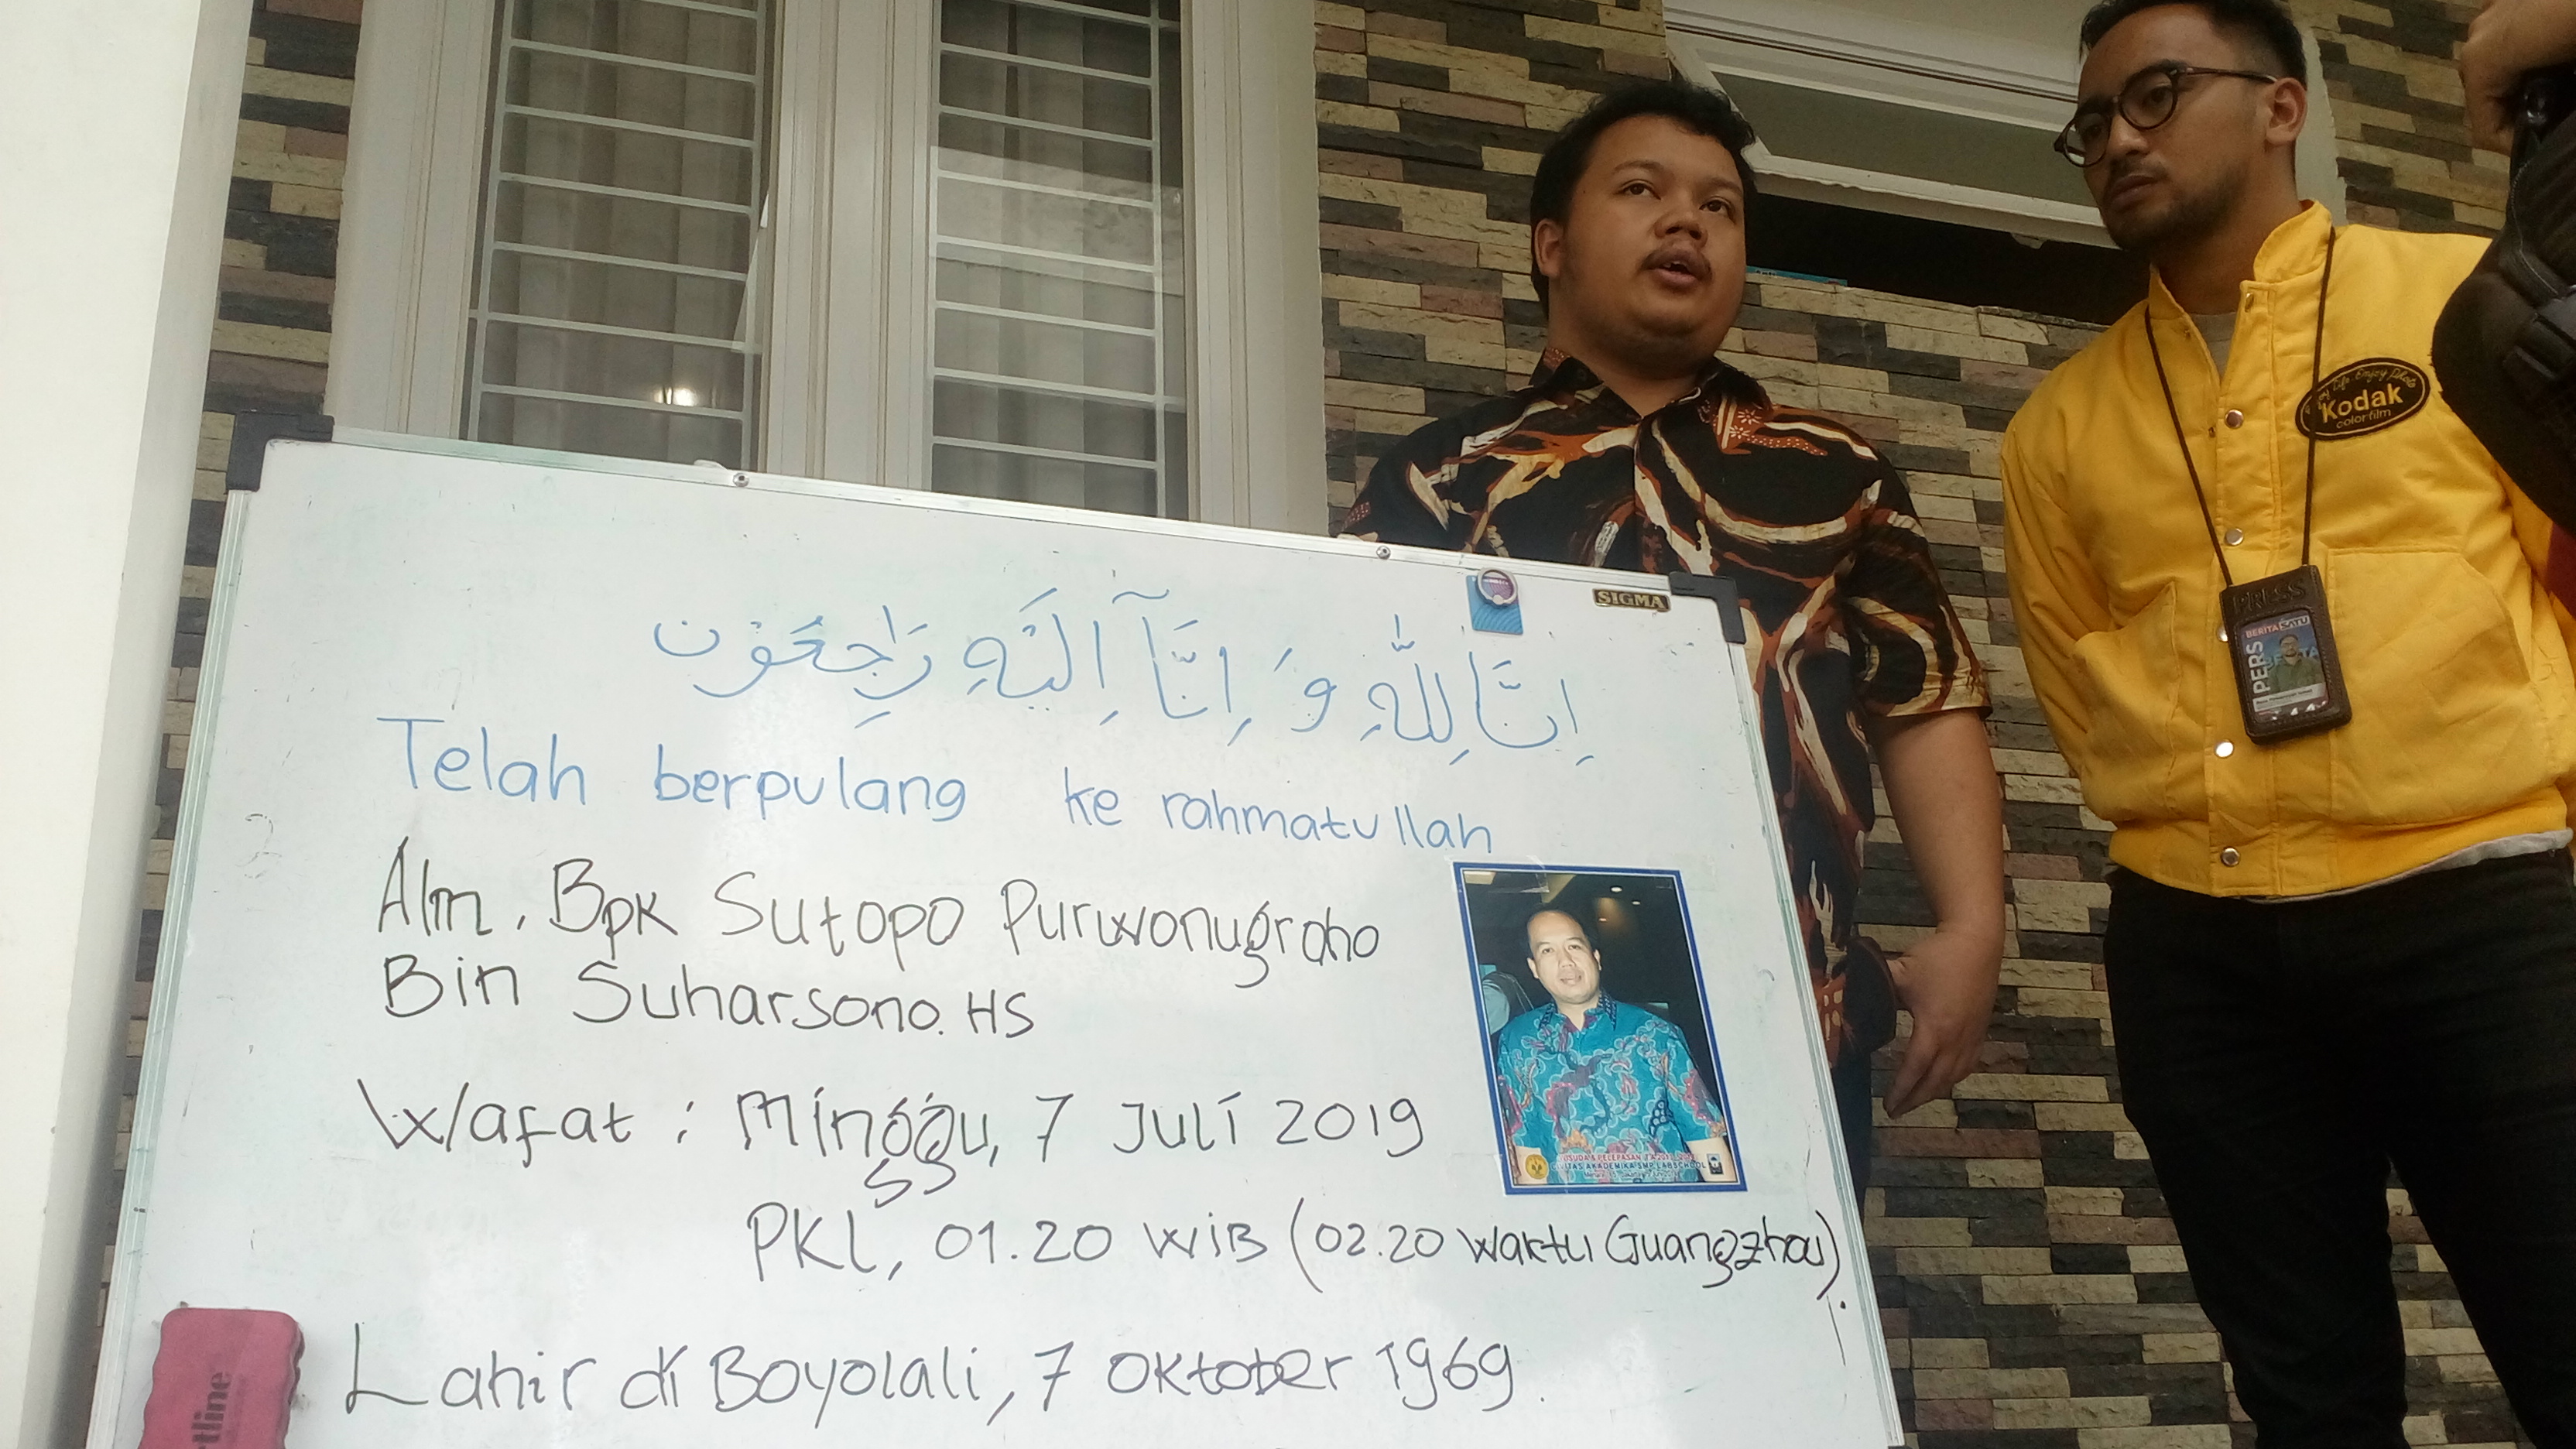 Kodak
colorfilm
SIGMA
PRESS
BERITA SATU
PERS
اِنَّا لِلّٰهِ وَ اِنَّآ اِلَيْهِ رَاجِعُوْنَ
Telah berpulang ke rahmatullah
Alm. Bpk Sutopo Purwonugroho
Bin Suharsono. HS
Wafat : Minggu, 7 Juli 2019
PKL, 01.20 WIB (02.20 Waktu Guangzhou).
Lahir di Boyolali, 7 Oktober 1969.
CIVITAS AKADEMIKA SMP LABSCHOOL